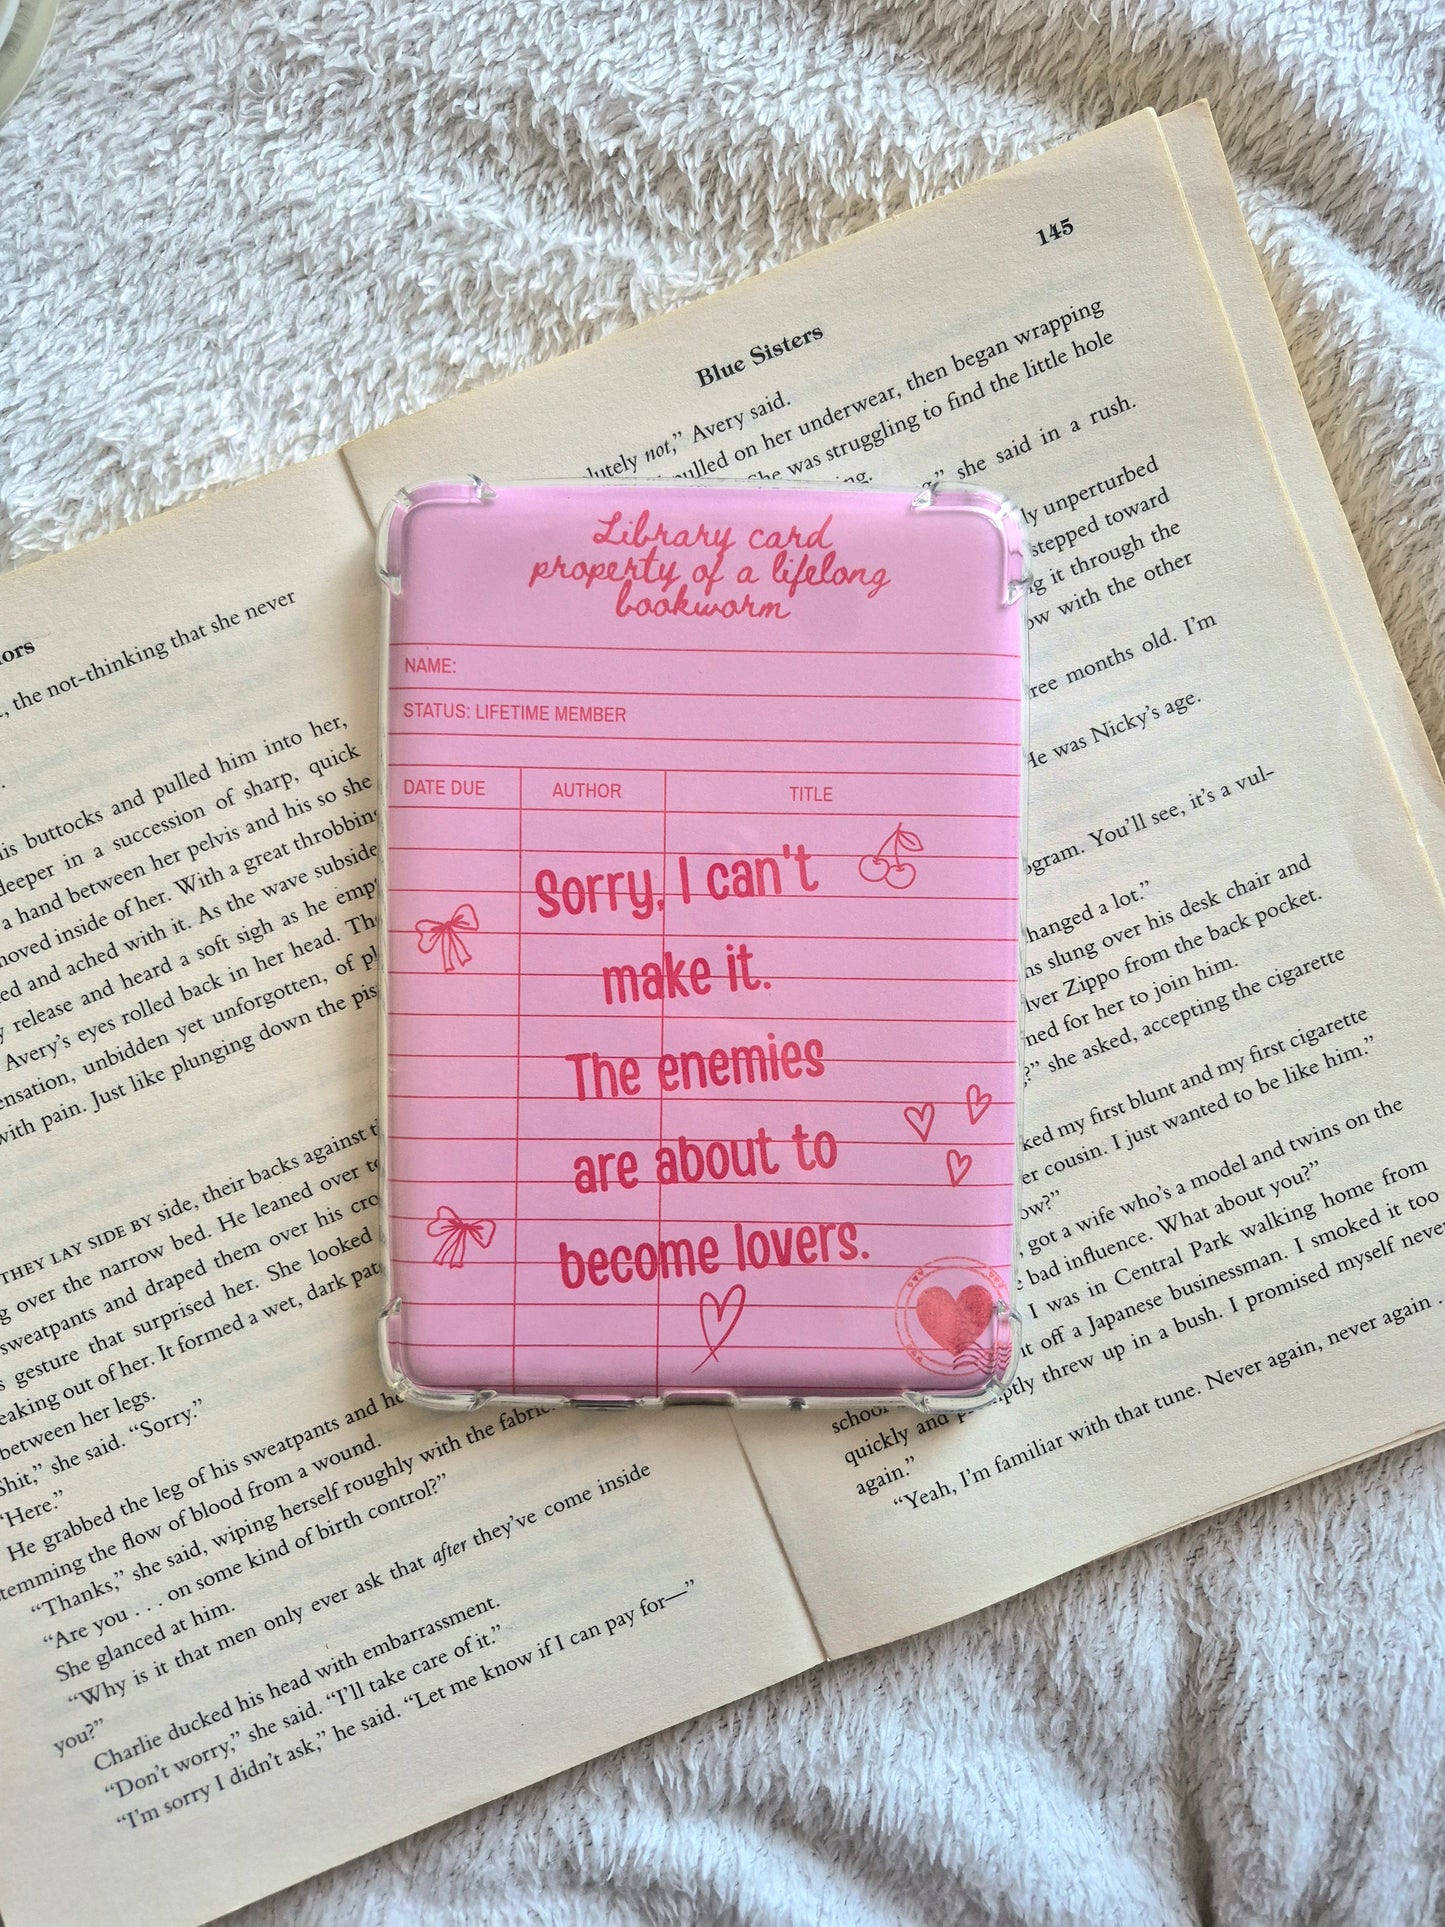 Library card
property of a lifelong
bookworm
NAME:
STATUS: LIFETIME MEMBER
DATE DUE AUTHOR TITLE
Sorry, I can't
make it.
The enemies
are about to
become lovers.
, the not-thinking that she never
buttocks and pulled him into her,
deeper in a succession of sharp, quick
a hand between her pelvis and his so she
moved inside of her. With a great throbbing
and ached with it. As the wave subside
release and heard a soft sigh as he
Avery's eyes rolled back in her head.
unbidden yet unforgotten, of
with pain. Just like plunging down the
THEY LAY SIDE BY side, their backs against
over the narrow bed. He leaned over
sweatpants and draped them over his
gesture that surprised her. She looked
out of her. It formed a wet, dark
between her legs.
she said. “Sorry.”
“Here.”
He grabbed the leg of his sweatpants and
the flow of blood from a wound.
“Thanks,” she said, wiping herself roughly with the
“Are you . . . on some kind of birth control?”
She glanced at him.
“Why is it that men only ever ask that after they’ve come inside
you?”
Charlie ducked his head with embarrassment.
“Don’t worry,” she said. “I’ll take care of it.”
“I’m sorry I didn’t ask,” he said. “Let me know if I can pay for—”
145
Blue Sisters
not,” Avery said.
pulled on her underwear, then began wrapping
She was struggling to find the little hole
she said in a rush.
unperturbed
stepped toward
it through the
with the other
months old. I’m
He was Nicky’s age.
You’ll see, it’s a vul-
a lot.”
slung over his desk chair and
Zippo from the back pocket.
for her to join him.
she asked, accepting the cigarette
my first blunt and my first cigarette
cousin. I just wanted to be like him.”
got a wife who’s a model and twins on the
bad influence. What about you?”
I was in Central Park walking home from
school
it off a Japanese businessman. I smoked it too
quickly and promptly threw up in a bush. I promised myself never
again.”
“Yeah, I’m familiar with that tune. Never again, never again . .